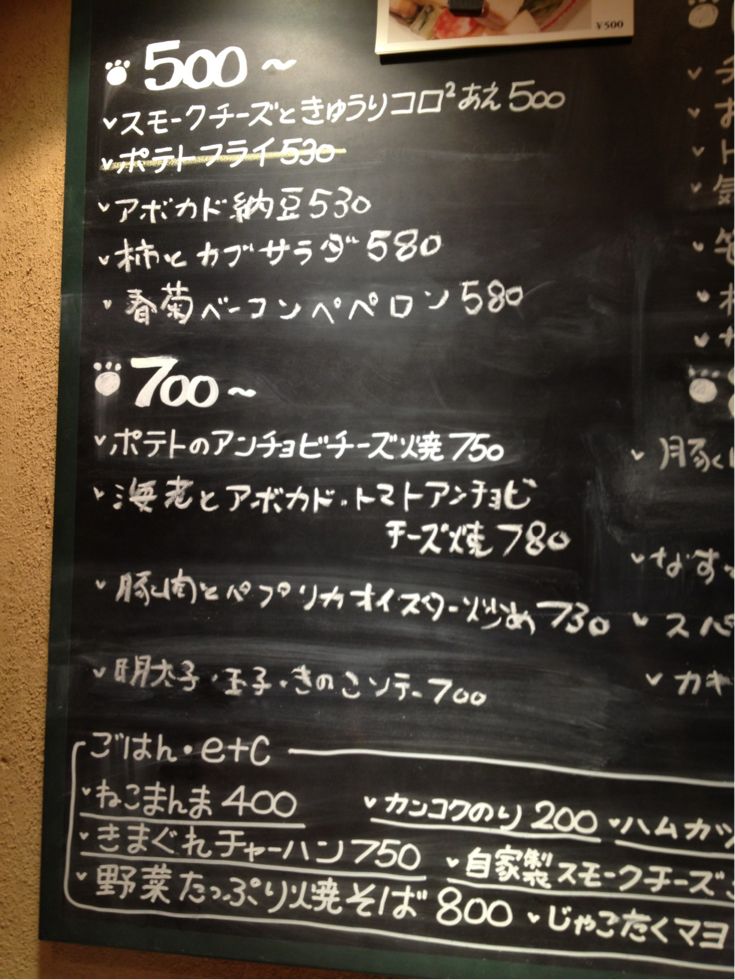 ¥500
500～
スモークチーズときゅうりコロ²あえ 500
ポテトフライ 530
アボカド納豆 530
柿とカブサラダ 580
春菊ベーコンペペロン 580
700～
ポテトのアンチョビチーズ焼 750
海老とアボカド・トマトアンチョビ
チーズ焼 780
豚肉とパプリカオイスター炒め 730
明太子・玉子・きのこソテー 700
豚く
なす
スパ
カキ
ごはん・etc
ねこまんま 400
カンコクのり 200
ハムカツ
きまぐれチャーハン 750
自家製スモークチーズ
野菜たっぷり焼そば 800
じゃこたくマヨ